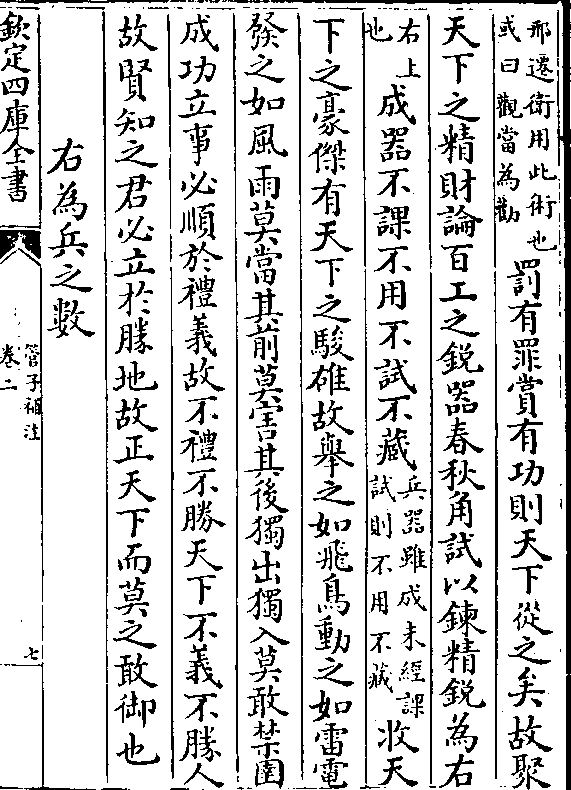 邢遷衛用此術也
或曰觀當為勸
罰有罪賞有功則天下從之矣故聚
天下之精財論百工之鋭器春秋角試以鍊精鋭為右
右上
也
成器不課不用不試不藏
兵器雖成未經課
試則不用不藏
收天
下之豪傑有天下之駿雄故舉之如飛鳥動之如雷電
發之如風雨莫當其前莫害其後獨出獨入莫敢禁圉
成功立事必順於禮義故不禮不勝天下不義不勝人
故賢知之君必立於勝地故正天下而莫之敢御也
右為兵之數
欽定四庫全書
管子補注
卷二
七